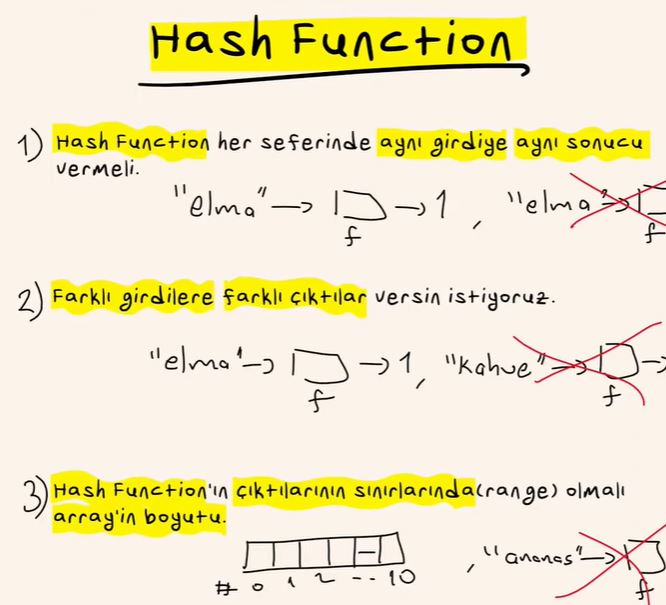 Hash Function
1) Hash Function her seferinde aynı girdiye aynı sonucu
vermeli.
"elma" → → 1 , "elma" →
f f
2) Farklı girdilere farklı çıktılar versin istiyoruz.
"elma" → → 1, "kahve" → →
f f
3) Hash Function'ın çıktılarının sınırlarında(range) olmalı
array'in boyutu.
, "ananas" →
# 0 1 2 -- 10 f